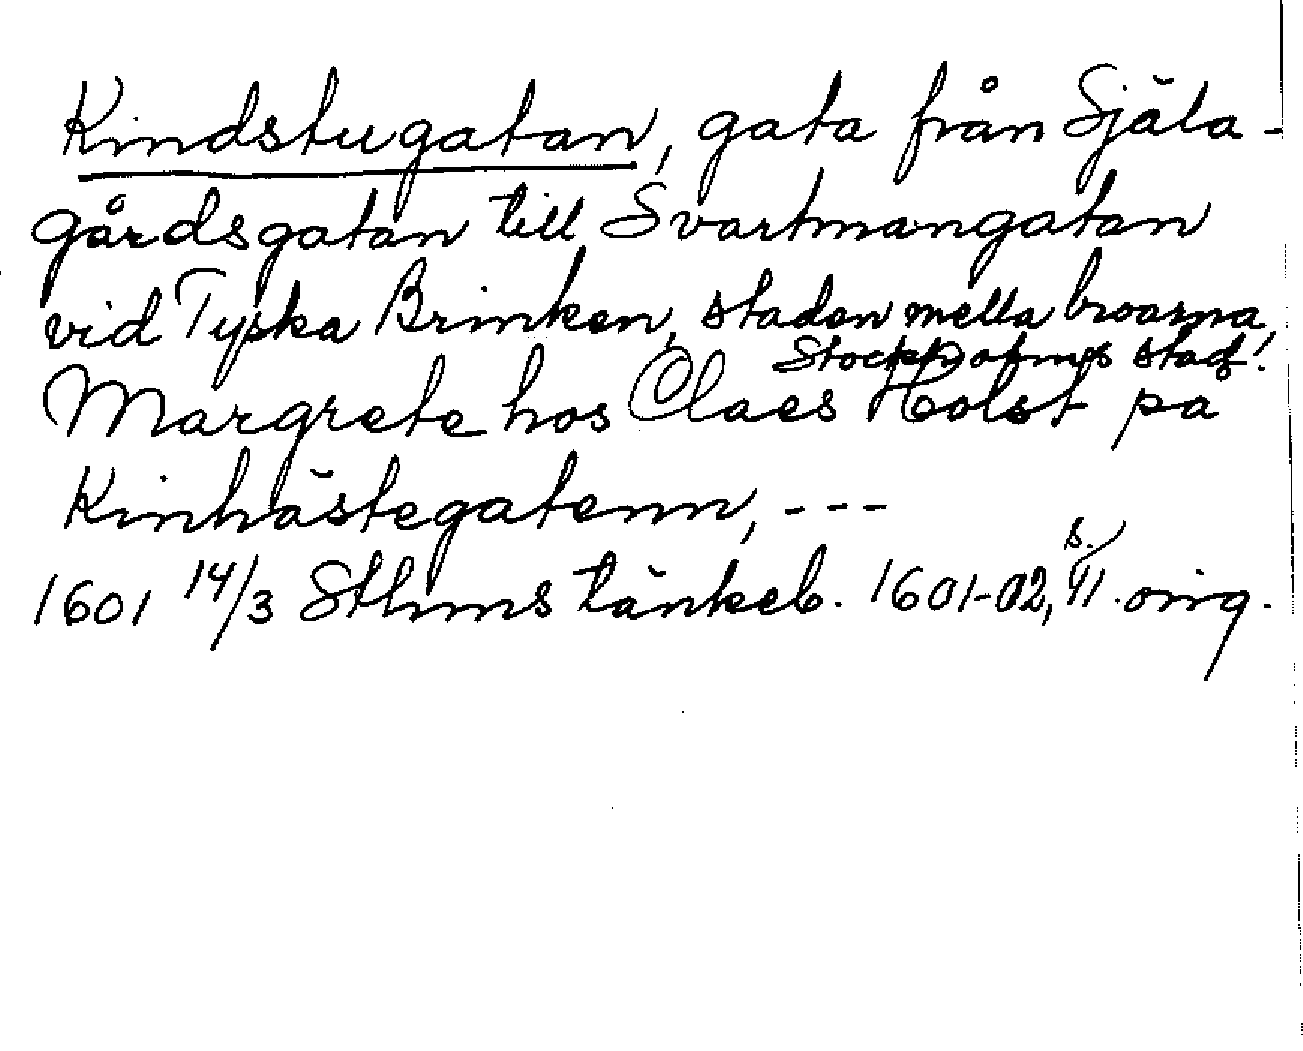 Kindstugatan, gata från Själa-
gårdsgatan till Svartmangatan
vid Tyska Brinken, staden mella broarna,
Stockholms stad!
Margrete hos Claes Holst pa
Kinhästegatenn, ---
1601 14/3 Sthms tänkeb. 1601-02, s. 41. orig.